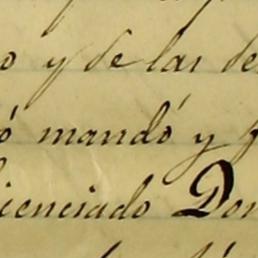 o y de las de
ó mandó y f
icenciado Don